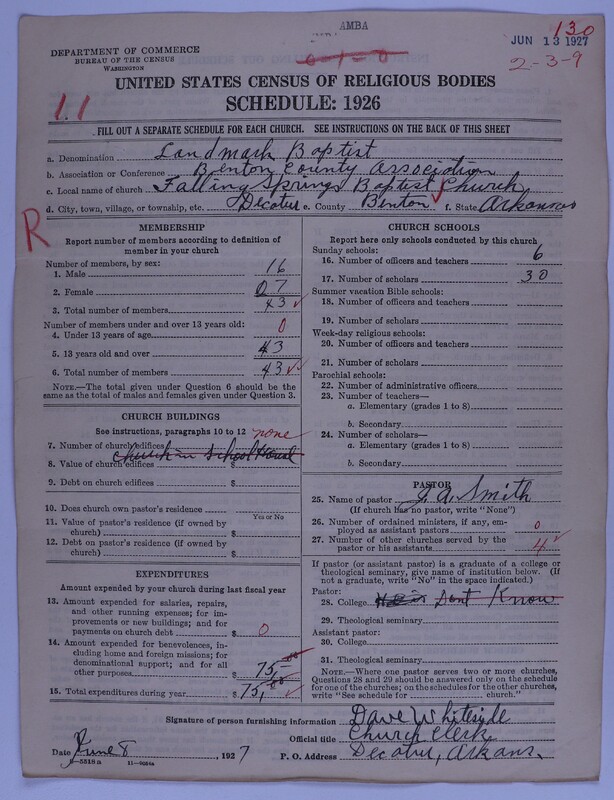 AMBA
130
JUN 13 1927
0-1-0
2-3-9
DEPARTMENT OF COMMERCE
BUREAU OF THE CENSUS
WASHINGTON
UNITED STATES CENSUS OF RELIGIOUS BODIES
SCHEDULE: 1926
1.1
FILL OUT A SEPARATE SCHEDULE FOR EACH CHURCH. SEE INSTRUCTIONS ON THE BACK OF THIS SHEET
a. Denomination Landmark Baptist
b. Association or Conference Benton County Association
c. Local name of church Falling Springs Baptist Church
d. City, town, village, or township, etc. Decatur e. County Benton f. State Arkansas
R
MEMBERSHIP
Report number of members according to definition of
member in your church
Number of members, by sex:
1. Male 16
2. Female 27
3. Total number of members 43
Number of members under and over 13 years old:
4. Under 13 years of age 0
5. 13 years old and over 43
6. Total number of members 43
NOTE.—The total given under Question 6 should be
the same as the total of males and females given under Question 3.
CHURCH BUILDINGS
See instructions, paragraphs 10 to 12
7. Number of church edifices none
church in School House
8. Value of church edifices $
9. Debt on church edifices $
10. Does church own pastor's residence
Yes or No
11. Value of pastor's residence (if owned by
church) $
12. Debt on pastor's residence (if owned by
church) $
EXPENDITURES
Amount expended by your church during last fiscal year
13. Amount expended for salaries, repairs,
and other running expenses; for im-
provements or new buildings; and for
payments on church debt $ 0
14. Amount expended for benevolences, in-
cluding home and foreign missions; for
denominational support; and for all
other purposes $ 75.00
15. Total expenditures during year $ 75.00
CHURCH SCHOOLS
Report here only schools conducted by this church
Sunday schools:
16. Number of officers and teachers 6
17. Number of scholars 30
Summer vacation Bible schools:
18. Number of officers and teachers
19. Number of scholars
Week-day religious schools:
20. Number of officers and teachers
21. Number of scholars
Parochial schools:
22. Number of administrative officers
23. Number of teachers—
a. Elementary (grades 1 to 8)
b. Secondary
24. Number of scholars—
a. Elementary (grades 1 to 8)
b. Secondary
PASTOR
25. Name of pastor J. A. Smith
(If church has no pastor, write "None")
26. Number of ordained ministers, if any, em-
ployed as assistant pastors 0
27. Number of other churches served by the
pastor or his assistants 4
If pastor (or assistant pastor) is a graduate of a college or
theological seminary, give name of institution below. (If
not a graduate, write "No" in the space indicated.)
Pastor:
28. College Dont Know
29. Theological seminary
Assistant pastor:
30. College
31. Theological seminary
NOTE.—Where one pastor serves two or more churches,
Questions 28 and 29 should be answered only on the schedule
for one of the churches; on the schedules for the other churches,
write "See schedule for church."
Signature of person furnishing information Dave Whiteside
Official title Church Clerk
Date June 8 1927 P. O. Address Decatur, Arkans.